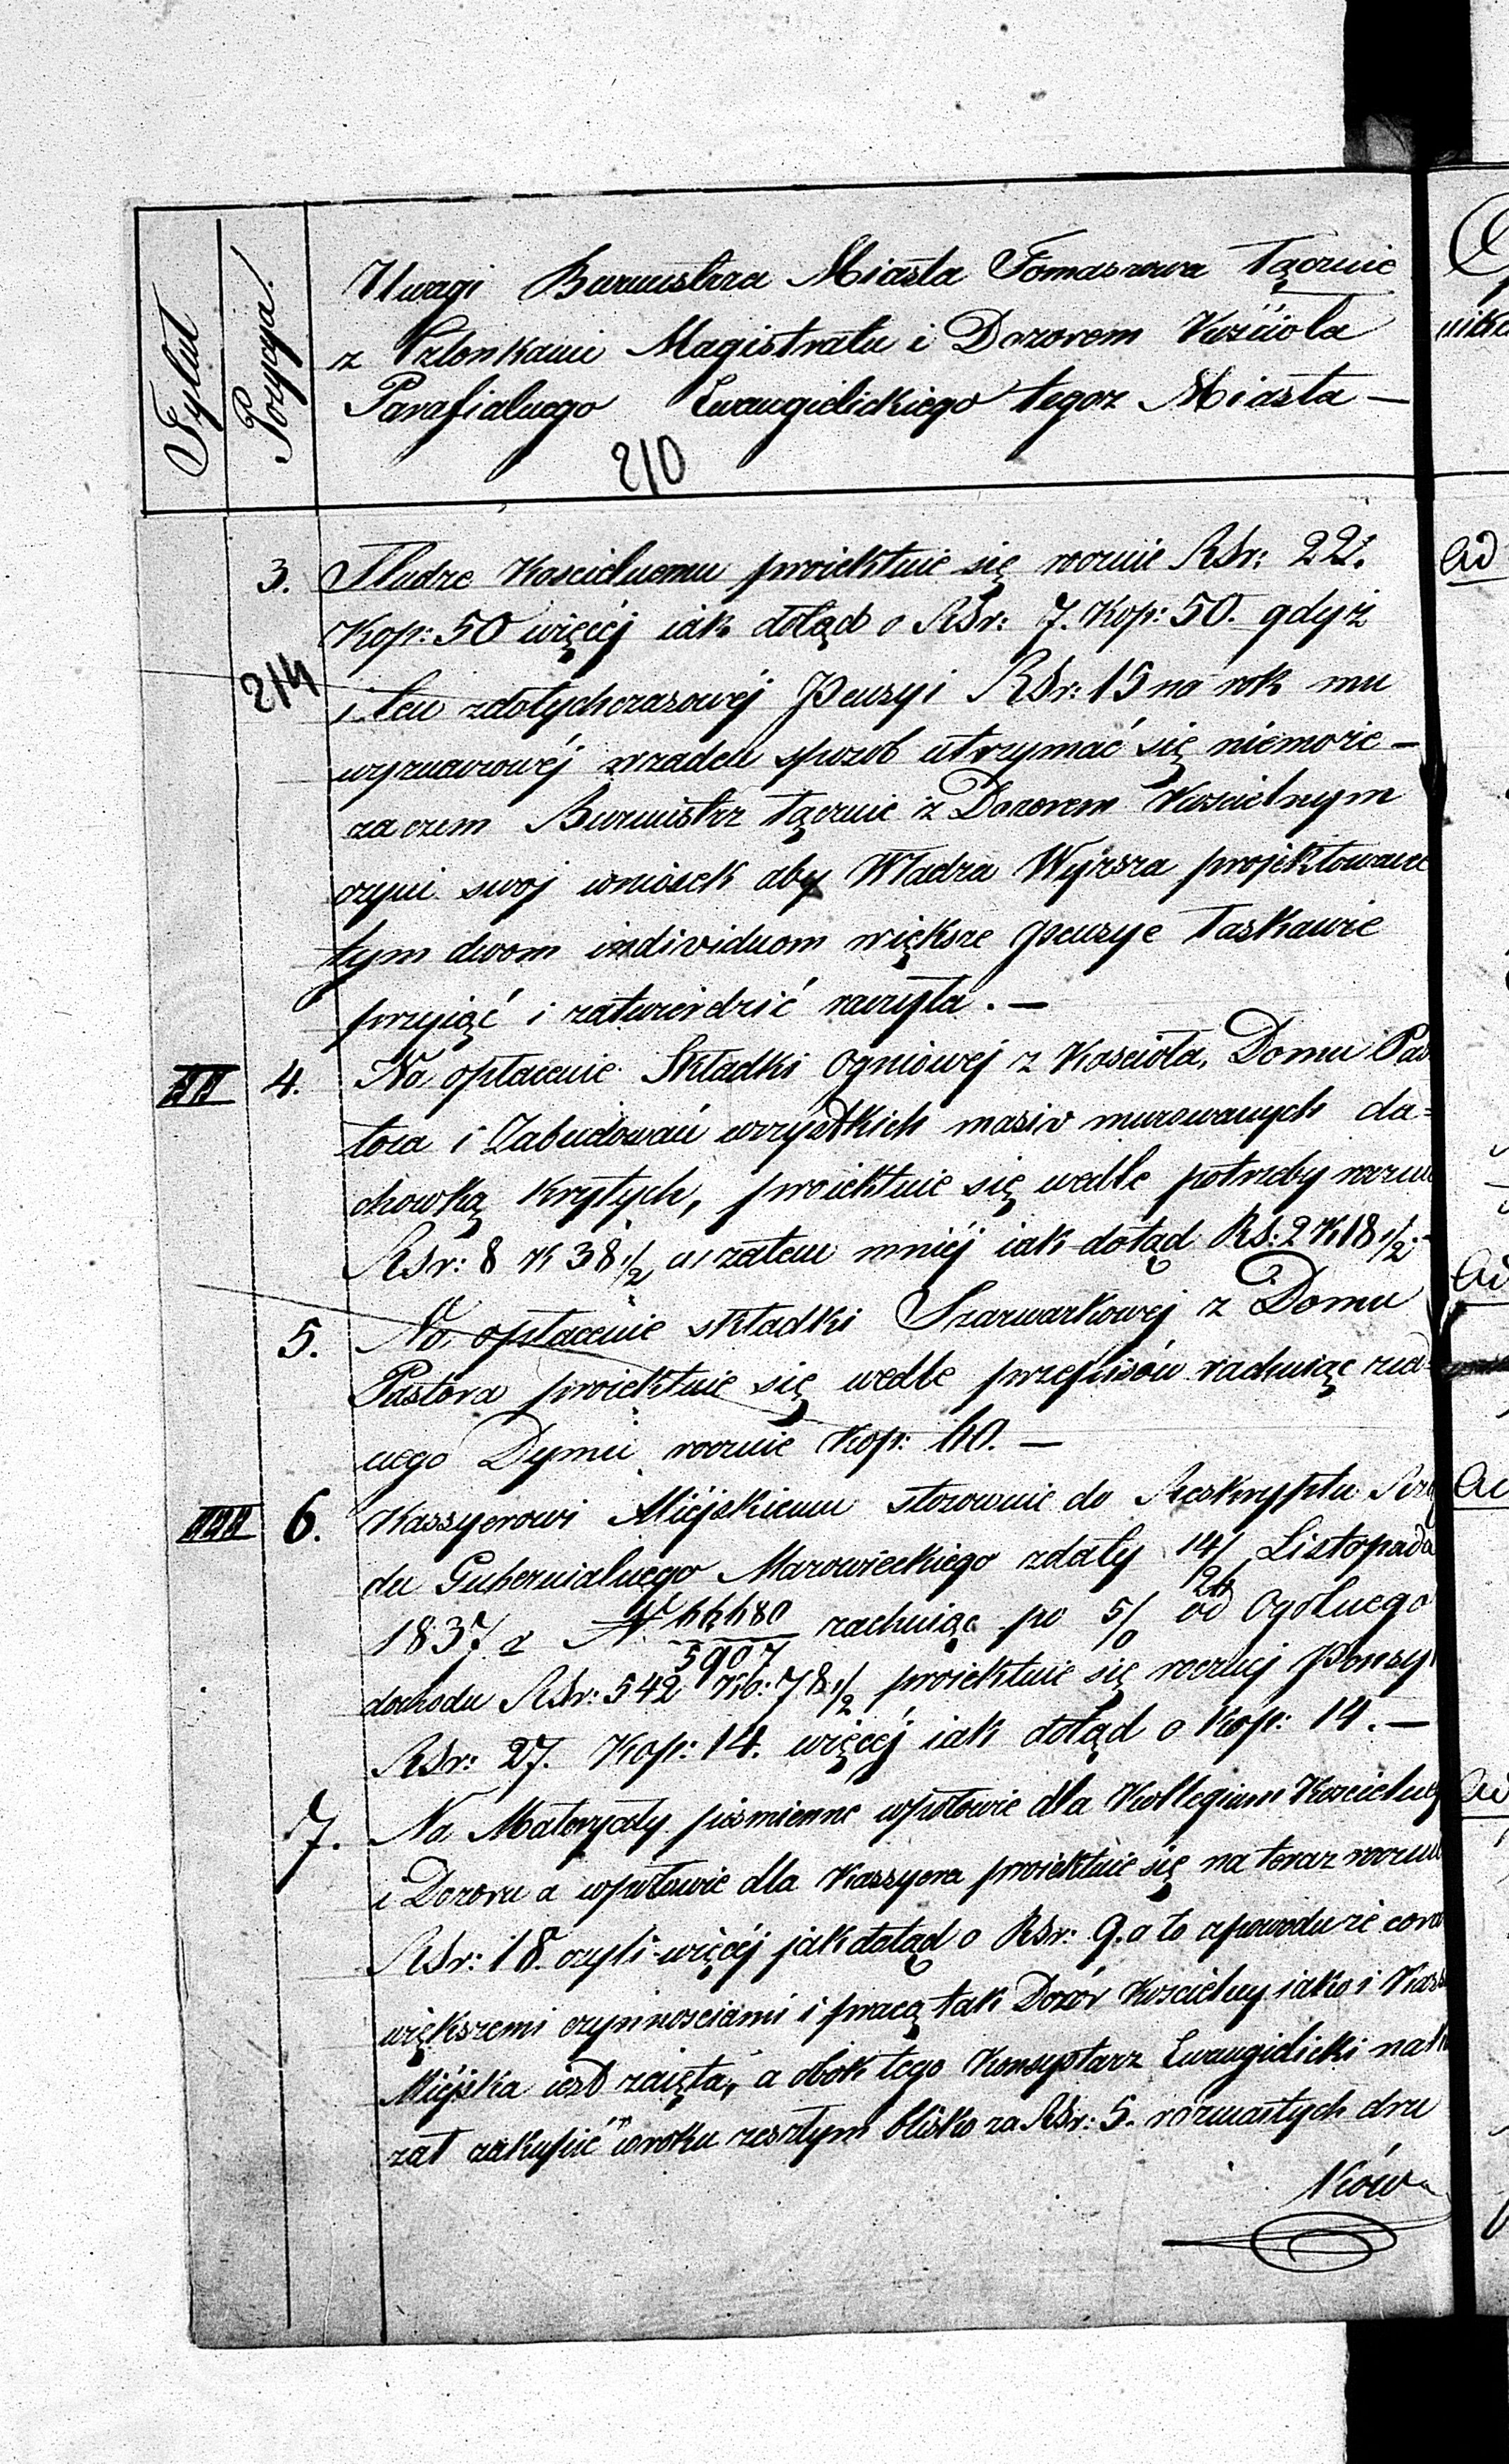 Tytuł
Pozycya.
Uwagi Burmistrza Miasta Tomaszowa łącznie
z Członkami Magistratu i Dozorem Kościoła
Parafialnego Ewangielickiego tegoż Miasta —
210
3. Słudze Kościelnemu proiektuie się rocznie RSr: 22.
Kop: 50 więcéj iak dotąd o RSr: 7. Kop: 50. gdyż
214
i ten zdotychczasowéj Pensyi RSr: 15 na rok mu
wyznaczonéj wżaden sposób utrzymać się niemoże —
zaczem Burmistrz łącznie z Dozorem Kościelnym
czyni swoj wniosek aby Władza Wyższa projektowane
tym dwom individuom większe pensye łaskawie
przyiąć i zatwierdzić raczyła. —
II 4. Na opłacenie Składki Ogniowej z Kościoła, Domu Pas
tora i Zabudowań wszystkich masiv murowanych da=
chowką krytych, proiektuie się wedle potrzeby roczni
RSr: 8 K 38 1/2 a zatem mniéj iak dotąd RS: 2 K 18 1/2. —
5. Na opłacenie składki Szarwarkowej z Domu
Pastora proiektuie się wedle przepisów rachuiąc zied=
nego Dymu rocznie Kop: 60. —
III 6. Kassyerowi Miéjskiemu stosownie do Reskryptu Rzą
du Gubernialnego Mazowieckiego zdaty 14/26 Listopada
1837 r N 44480/5907 rachuiąc po 5/0 od Ogólnego
dochodu RSr: 542 Ko: 78 1/2 proiektuie się rocznej Pensy
RSr: 27. Kop: 14. więcéj iak dotąd o Kop: 14. —
7. Na Materyały piśmienne wpołowie dla Kollegium Kościelneg
i Dozoru a wpołowie dla Kassyera proiektuie się na teraz roczni
RSr: 18. czyli więcéj jak dotąd o RSr: 9. a to zpowodu że cora
większemi czynnościami i pracą tak Dozór Kościelny iako i Kassa
Miéjska iest zaięta, a obok tego Konsystarz Ewangielicki naka
zał zakupić w roku zeszłym blisko za RSr: 5. rozmaitych dru
ków